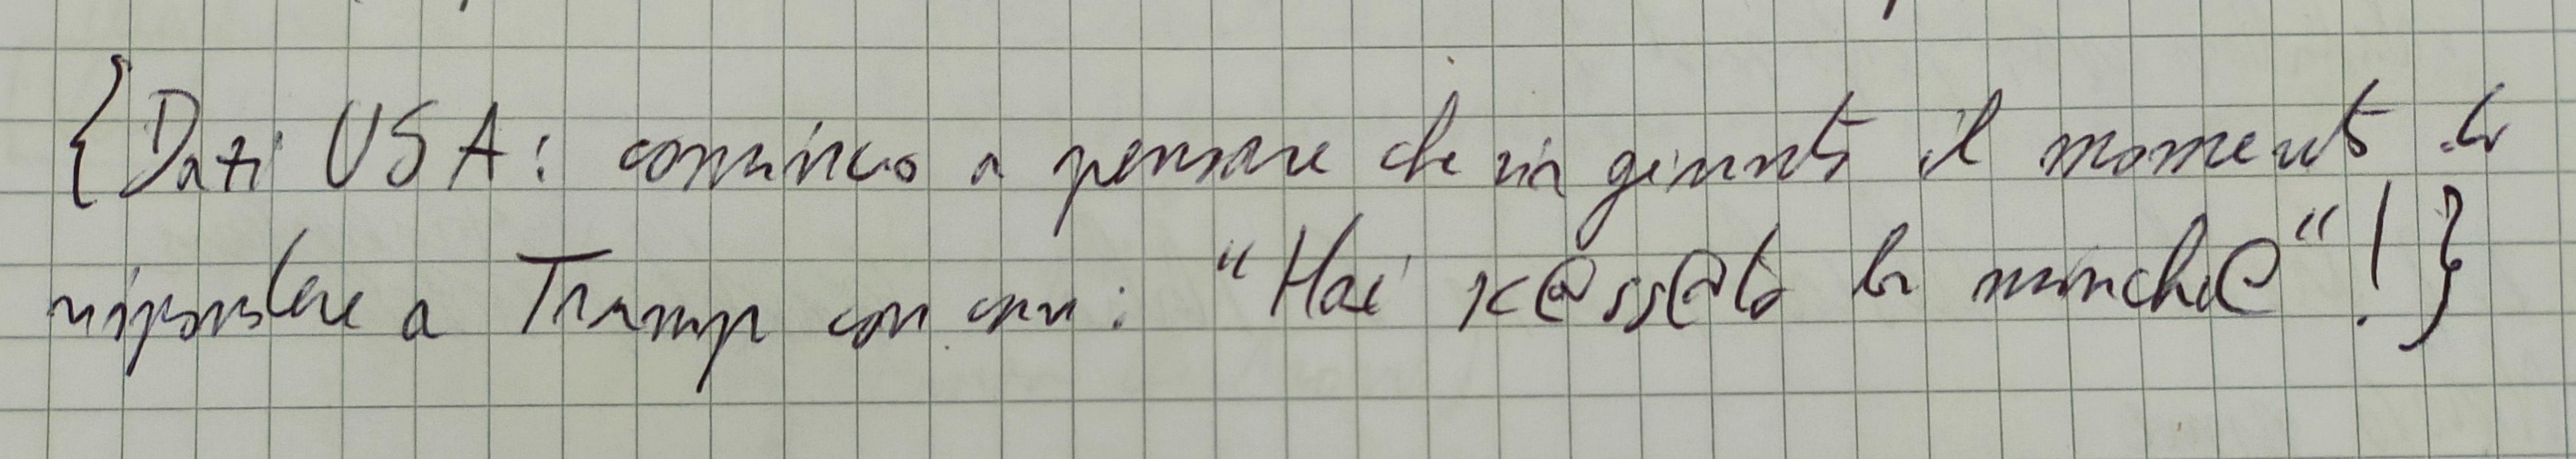 {Dazi USA: comincio a pensare che sia giunto il momento di
rispondere a Trump con un: "Hai sc@ss@to la minchi@"!}